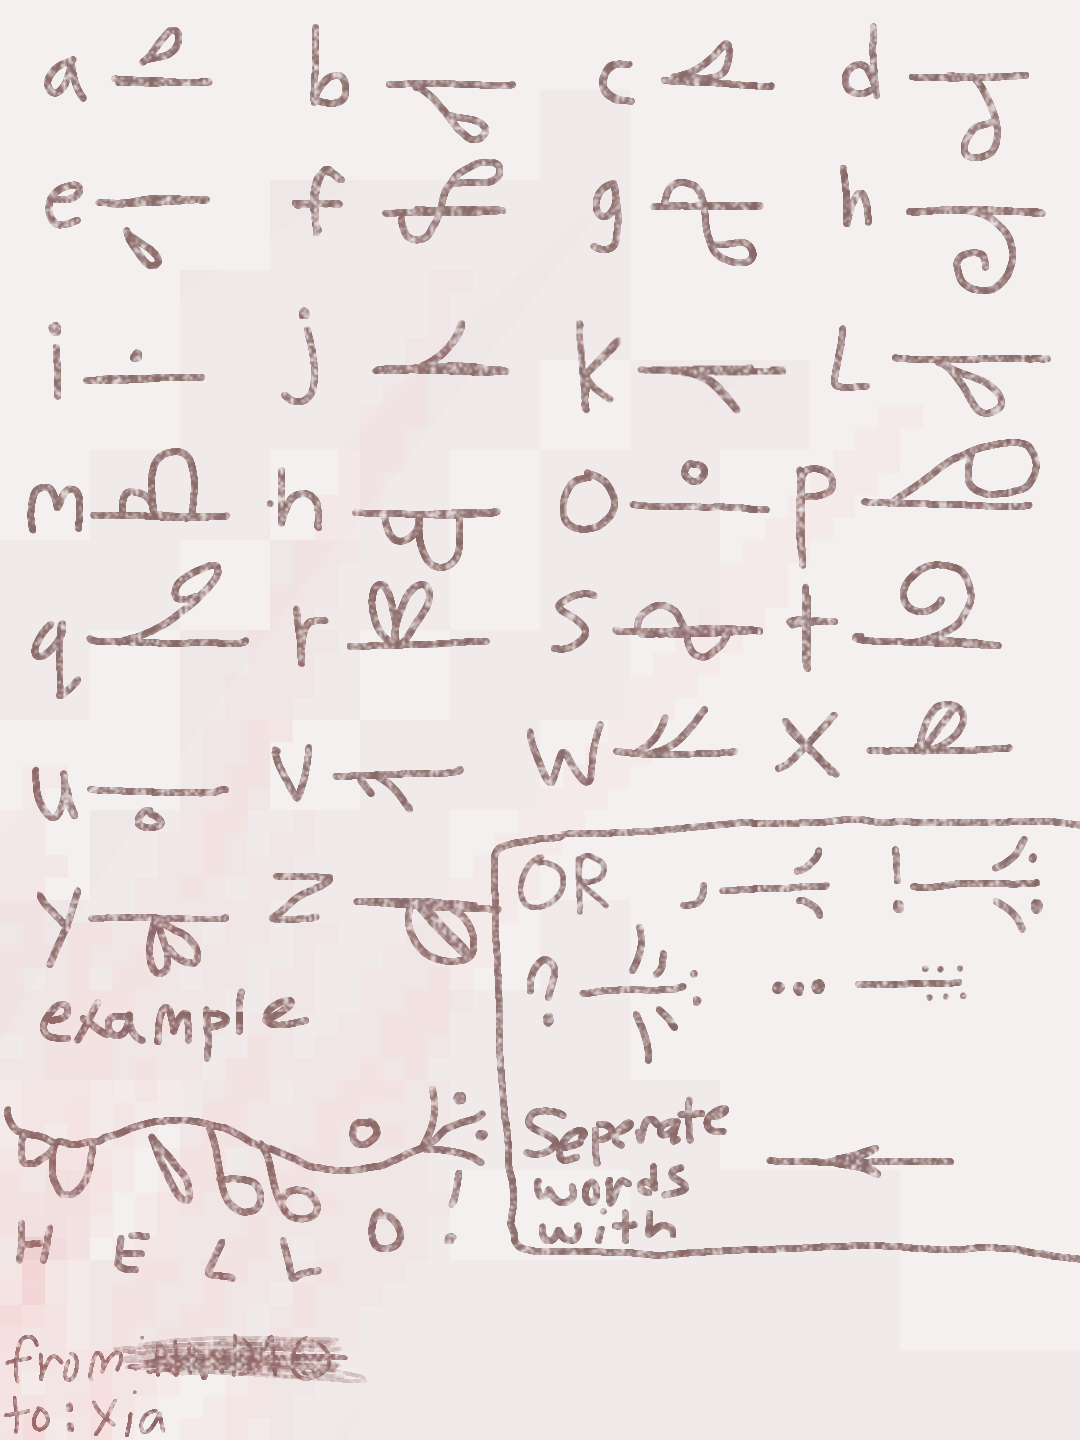 a b c d
e f g h
i j k L
m n o p
q r s t
u v w x
y z
OR , !
? ...
example
Seperate
words
with
H E L L O !
from
to: Xia